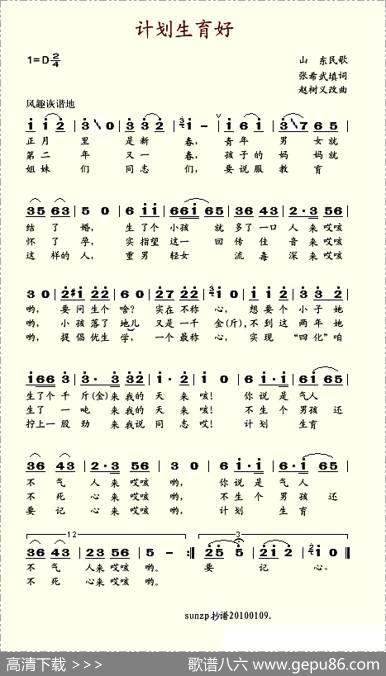 计划生育好
1=D 2/4
山 东民歌
张希武填词
赵树义改曲
风趣诙谐地
i i 2 | 3 \0 | 3 3 2 2 | i – ∨ | i 6 i | 3 \7 6 5 |
正月 里 是新 春, 青年 男 女就
第二 年 又一 春, 孩子的 妈 妈就
姐妹 们 同志 们, 要说服 教 育
3 5 6 3 | 5 0 | 6 i i | 6 6 i 6 5 | 3 6 4 3 | 2 · 3 5 6 |
结了 婚, 生了个 小孩 就 多了一口 人 来哎咳
怀了 孕, 实指望 这一 回 传 佳 音 来哎咳
这样的 人, 重男 轻女 流 毒 深 来哎咳
3 0 | 2 #i 2 2 | 6 i 2 2 | 6 · i | 6 i 6 5 | 3 5 3 2 |
哟, 要问生个 啥? 实在不称 心, 想要个 小子 她
哟, 小孩落了 地儿 又是一千 金(斤), 不到这 两年 她
哟, 提倡优生 学, 一个最称 心, 实现 “四化”咱
i 6 6 3 | 2 · 3 2 2 | i 0 | i · i | 6 · i | 6 i 6 5 |
生了个 千 斤(金)来 我的 天 来 咳! 你 说 是 气人
生了一 吨 来 我的 天 来 咳! 不 生 个 男孩 还
拧上一股 劲 来 我说 同志 哎! 计 划 生育
3 6 4 3 | 2 · 3 5 6 | 3 0 | 6 · i | i · i | 6 i 6 5 |
不 气 人 来 哎咳 哟, 你 说 是 气人
不 死 心 来 哎咳 哟, 不 生 个 男孩 还
要 记 心 来 哎咳 哟, 计 划 生育
12 3
3 6 4 3 | 2 3 5 6 | 5 – :‖ 2 5 5 | 2 i 2 | i 0 ‖
不 气 人来 哎咳 哟。 要 记 心。
不 死 心来 哎咳 哟。
sunzp 抄谱20100109.
高清下载 >>>
歌谱八六 www.gepu86.com